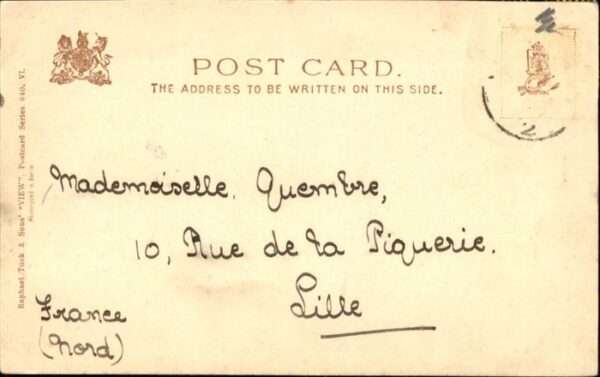 POST CARD.
THE ADDRESS TO BE WRITTEN ON THIS SIDE.
2
Mademoiselle. Quembre,
10, Rue de la Piquerie.
Lille
France
(Nord)
Raphael Tuck & Sons' "VIEW", Postcard Series 840, VI.